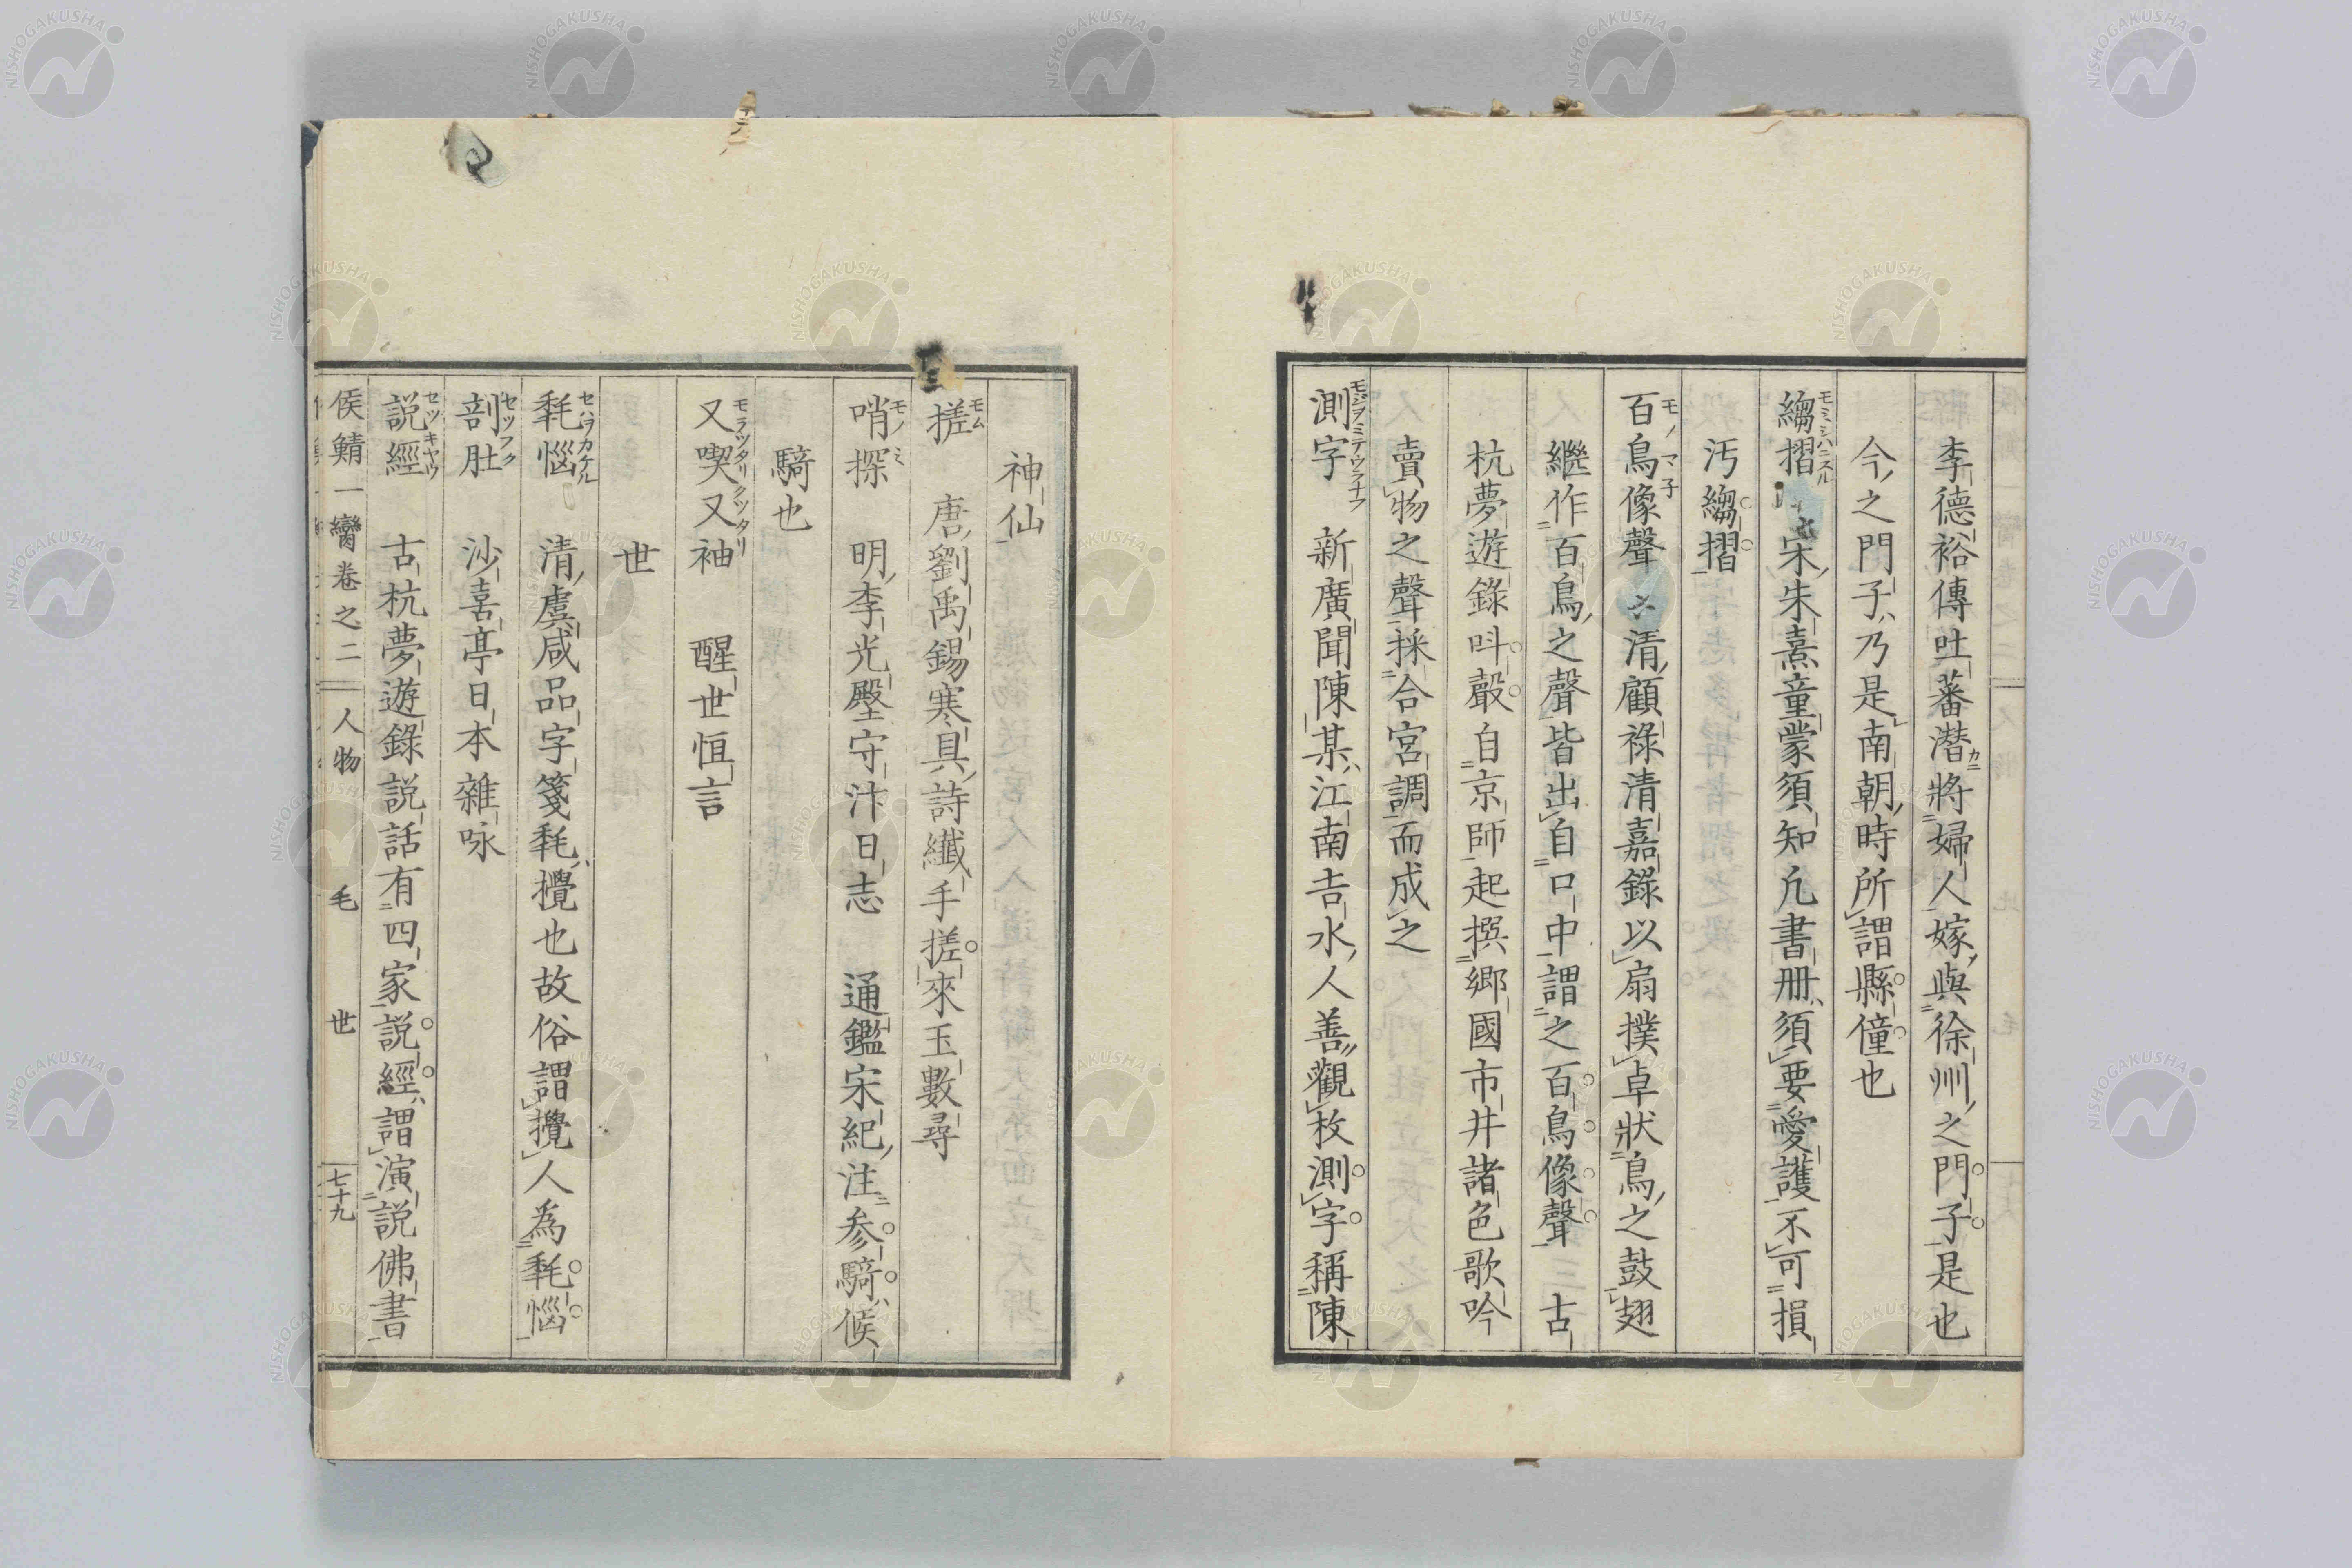 李德裕傳吐蕃潜將婦人嫁與徐州之門子是也
今之門子乃是南朝時所謂縣僮也
縐摺 宋朱熹童蒙須知凡書册須要愛護不可損
汚縐摺
百鳥像聲 清顧祿清嘉錄以扇撲卓狀鳥之鼓翅
繼作百鳥之聲皆出自口中謂之百鳥像聲 三古
杭夢遊錄呌聲自京師起撰鄉國市井諸色歌吟
賣物之聲採合宮調而成之
測字 新廣聞陳某江南吉水人善觀枚測字稱陳
神仙
搓 唐劉禹錫寒具詩纖手搓來玉數尋
哨探 明李光壂守汴日志 通鑑宋紀注参騎候
騎也
又喫又袖 醒世恒言
世
毷惱 清虞咸品字箋毷攪也故俗謂攪人為毷惱
剖肚 沙喜亭日本雜咏
説經 古杭夢遊錄説話有四家説經謂演説佛書
侯鯖一臠卷之二 人物 毛 世 七十九
NISHOGAKUSHA